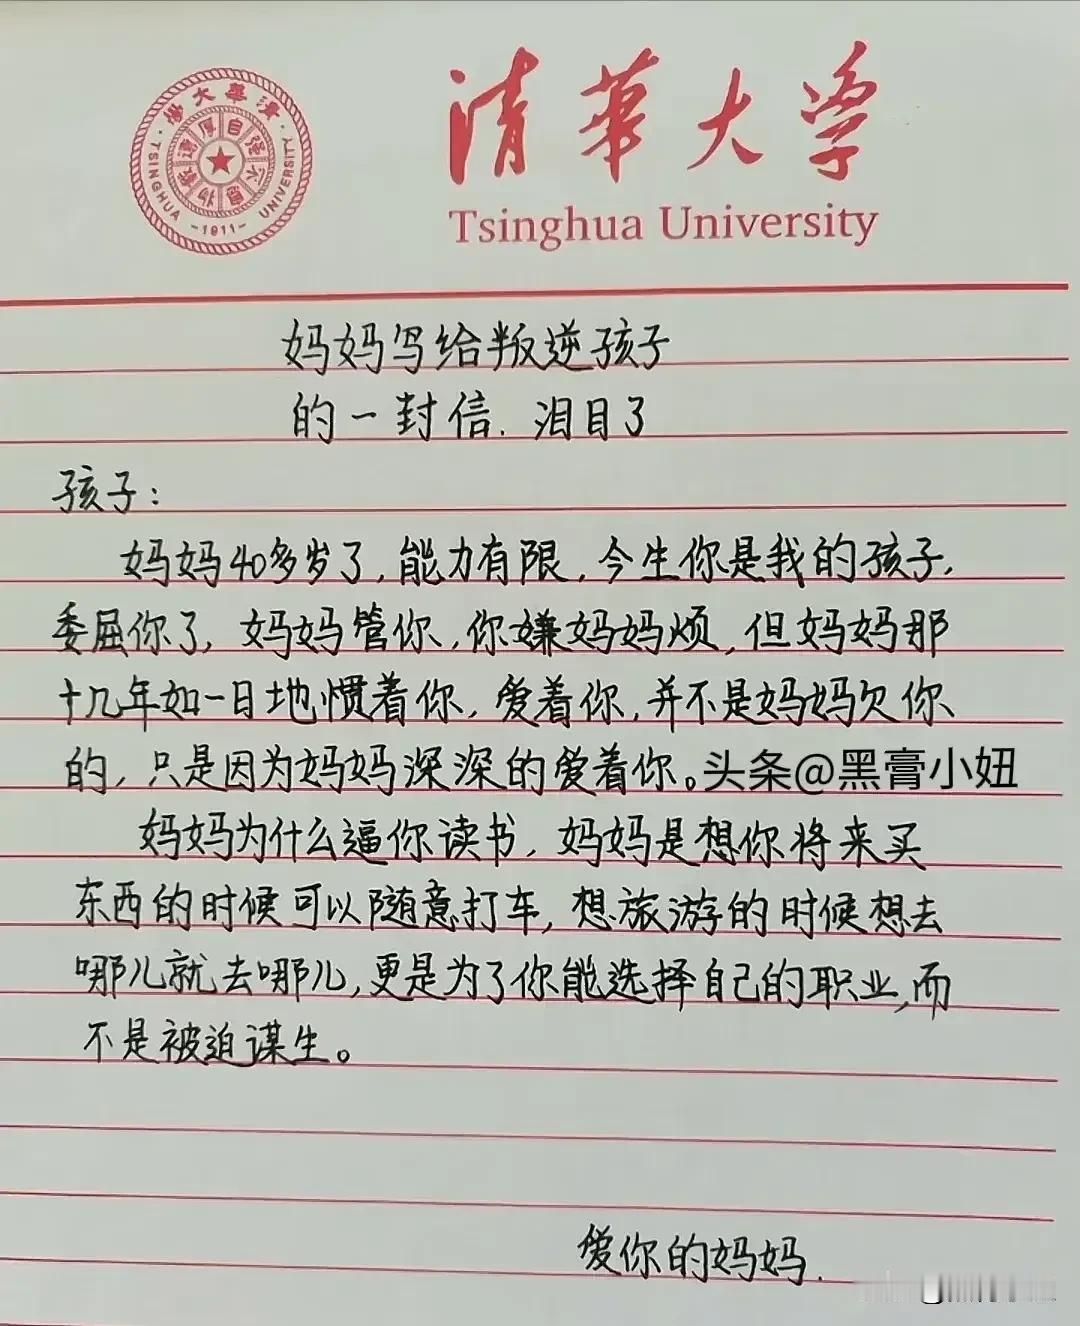 清華大学
Tsinghua University
清華大學
自强不息
厚德載物
TSINGHUA UNIVERSITY
-1911-
妈妈写给叛逆孩子
的一封信.泪目了
孩子:
妈妈40多岁了,能力有限,今生你是我的孩子,
委屈你了,妈妈管你,你嫌妈妈烦,但妈妈那
十几年如一日地惯着你,爱着你,并不是妈妈欠你
的,只是因为妈妈深深的爱着你。头条@黑膏小妞
妈妈为什么逼你读书,妈妈是想你将来买
东西的时候可以随意打车,想旅游的时候想去
哪儿就去哪儿,更是为了你能选择自己的职业,而
不是被迫谋生。
爱你的妈妈.